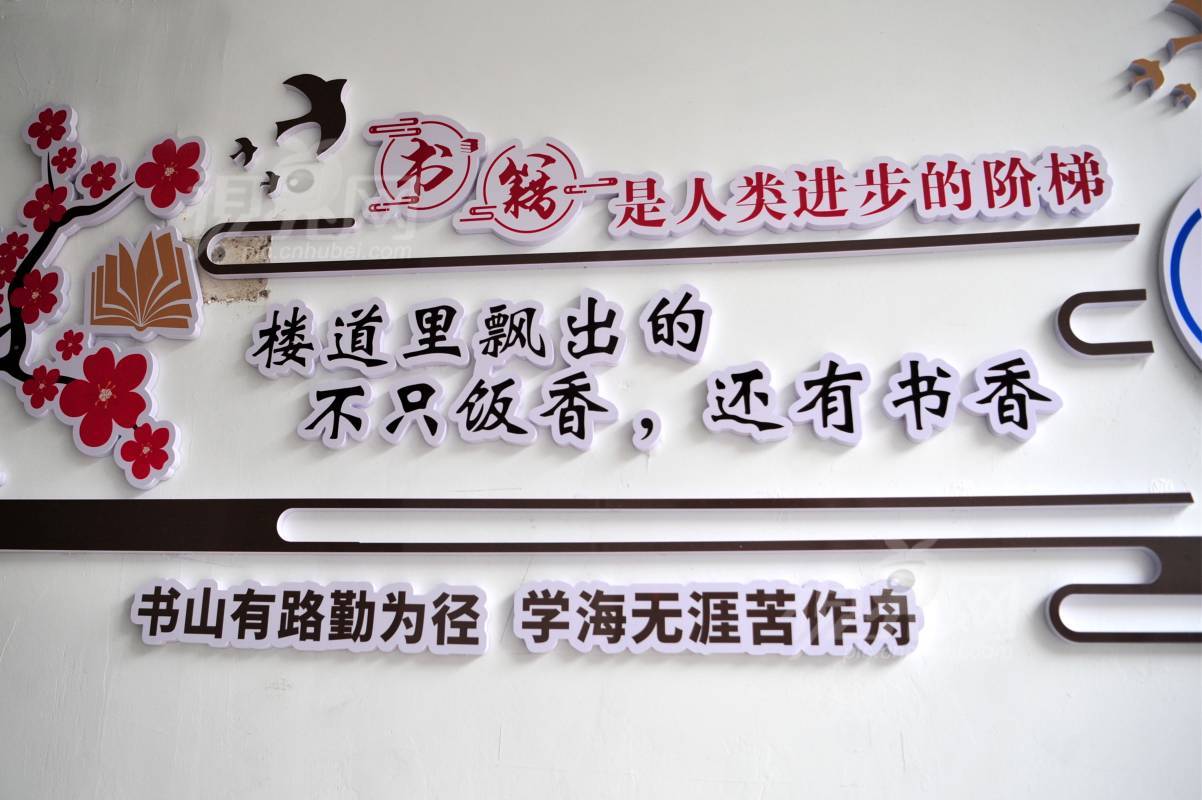 书籍是人类进步的阶梯
楼道里飘出的
不只饭香，还有书香
书山有路勤为径 学海无涯苦作舟
pic.cnhubei.com